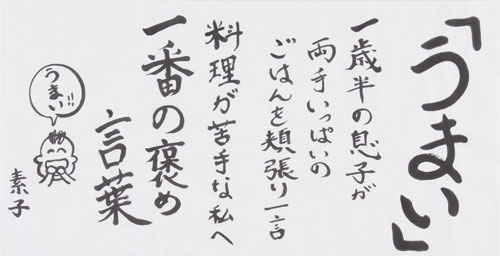 「うまい」
一歳半の息子が
両手いっぱいの
ごはんを頬張り一言
料理が苦手な私へ
一番の褒め
言葉
うまい!!
素子